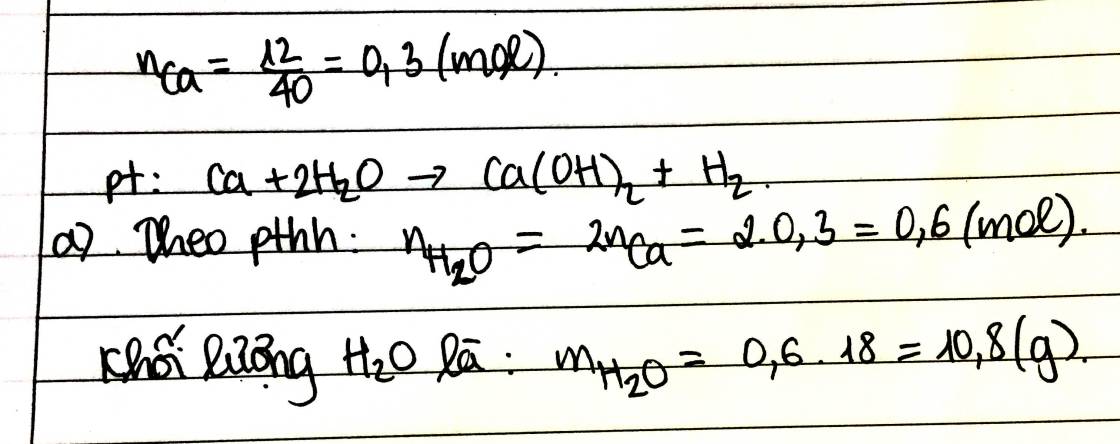 nCa = 12/40 = 0,3 (mol).
pt: Ca + 2H₂O → Ca(OH)₂ + H₂.
a). Theo pthh: nH₂O = 2nCa = 2.0,3 = 0,6 (mol).
Khối lượng H₂O là: mH₂O = 0,6 . 18 = 10,8 (g).